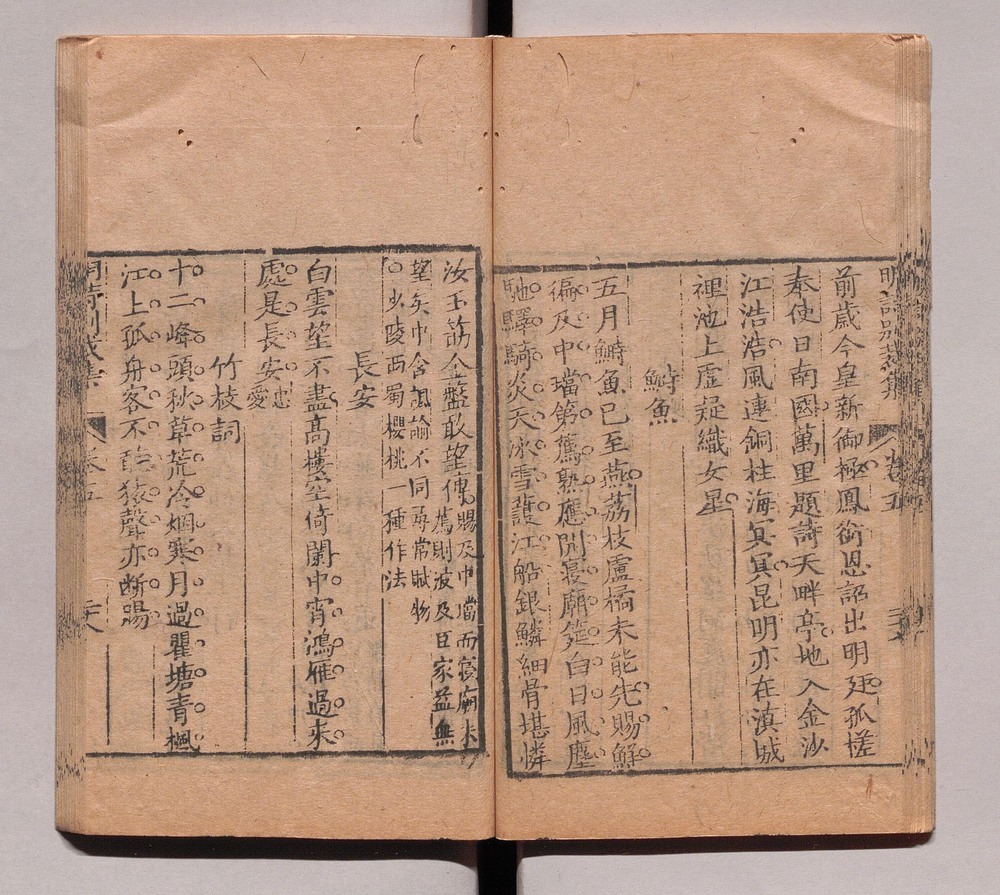 明詩別裁集 卷五
前歲今皇新御極鳳銜恩詔出明廷孤槎
奉使日南國萬里題詩天畔亭地入金沙
江浩浩風連銅柱海冥冥昆明亦在滇城
裡池上虛疑織女星
鰣魚
五月鰣魚已至燕荔枝盧橘未能先賜鮮
徧及中璫第薦熟應開寢廟筵白日風塵
馳驛騎炎天冰雪護江船銀鱗細骨堪憐
汝玉筯金盤敢望傳 賜及中璫而寢廟未
薦則波及臣家益無
望矣中含諷諭不同尋常賦物
少陵西蜀櫻桃一種作法
長安
白雲望不盡高樓空倚闌中宵鴻雁過來
處是長安 忠愛
竹枝詞
十二峰頭秋草荒冷烟寒月過瞿塘青楓
江上孤舟客不聽猿聲亦斷腸
明詩別裁集 卷五